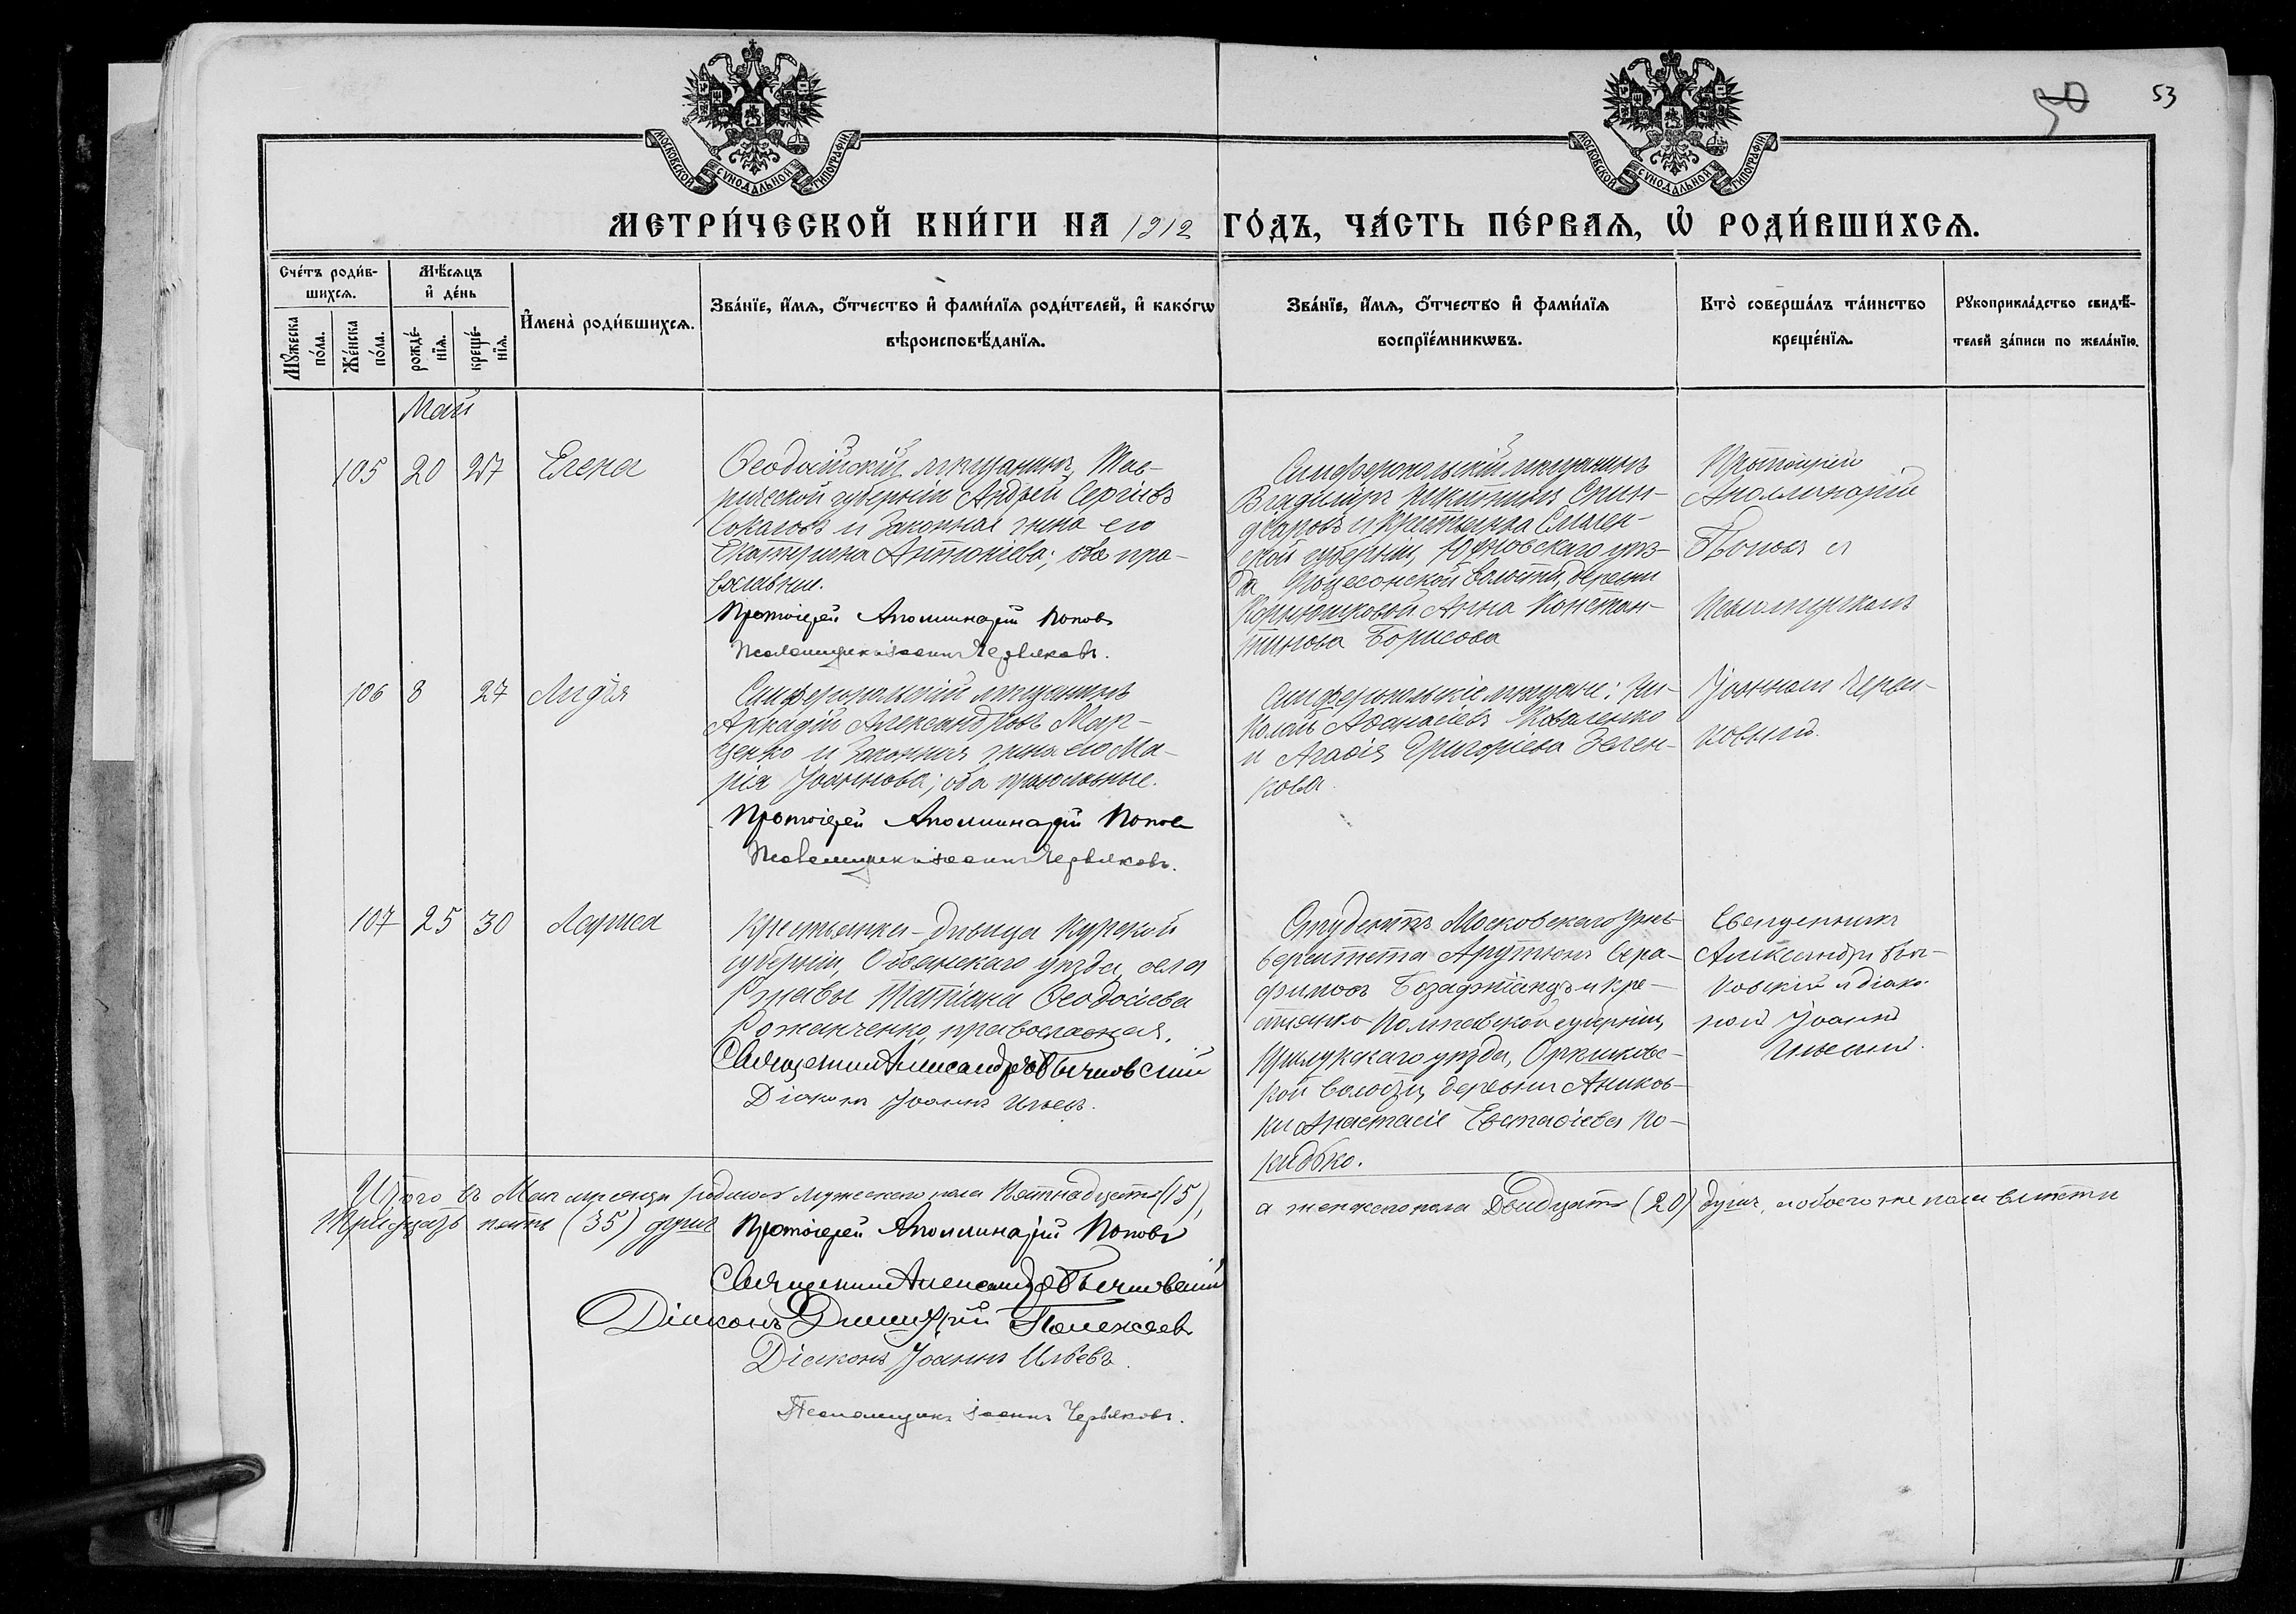 53
50
МОСКОВСКОЙ СѴНОДАЛЬНОЙ ТИПОГРАФІИ
МОСКОВСКОЙ СѴНОДАЛЬНОЙ ТИПОГРАФІИ
МЕТРИ́ЧЕСКОЙ КНИ́ГИ НА 1912 ГО́ДЪ, ЧА́СТЬ ПЕ́РВАѦ, Ѡ҆ РОДИ́ВШИХСѦ.
Сче́тъ роди́в-
шихсѧ.
Мꙋ́жеска по́ла.
Же́нска по́ла.
Мѣ́сѧцъ
и҆ де́нь
рожде́-нїѧ.
креще́-нїѧ.
И҆мена̀ роди́вшихсѧ.
Зва́нїе, и҆́мѧ, ѻ҆́тчество и҆ фами́лїѧ роди́телей, и҆ како́гѡ
вѣроисповѣ́данїѧ.
Зва́нїе, и҆́мѧ, ѻ҆́тчество и҆ фами́лїѧ
воспрїе́мникѡвъ.
Кто̀ соверша́лъ та́инство
креще́нїѧ.
Рꙋкоприкла́дство свидѣ́-
телей за́писи по жела́нїю.
Май
105 20 27 Елена
Ѳеодосійскій мѣщанинъ, Тав-
рической губерніи Андрей Сергіевъ
Соколовъ и законная жена его
Екатерина Антоніева; оба пра-
вославные.
Протоіерей Аполлинарій Поповъ
Псаломщикъ Іоаннъ Червяковъ.
Симферопольскій мѣщанинъ
Владиміръ Никитинъ Спин-
и крестьянка Смолен-
ской губерніи, Юхновскаго уѣз-
да, волости, деревни
Анна Констан-
тинова Борисова
Протоіерей
Аполлинарій
Поповъ съ
Псаломщикомъ
106 8 27 Лидія
Симферопольскій мѣщанинъ
Аркадій Александровъ Мар-
ценко и законная жена его Ма-
рія Іоаннова; оба православные.
Протоіерей Аполлинарій Попов
Псаломщикъ Іоаннъ Червяковъ.
Симферопольскіе мѣщане: Ни-
колай Аѳанасіевъ Коваленко
и Агаѳія Григоріева Зелен-
кова.
Іоанномъ Червя-
ковымъ.
107 25 30 Лариса
Крестьянка-дѣвица Курской
губерніи, Обоянскаго уѣзда, села
Ржавы Татіана Ѳеодосіева
Романченко, православная.
Священникъ Александръ
Діаконъ Іоаннъ Ильевъ.
Студентъ Московскаго Уни-
верситета Арутюнъ Сера-
фимовъ и кре-
стьянка Полтавской губерніи,
Прилукскаго уѣзда,
кой волости, деревни Аников-
ки Анастасія Евстаѳіева По-
кидько.
Священникъ
Александръ
и діако-
номъ Іоанномъ
Ильевымъ.
Итого въ Маѣ мѣсяцѣ родилось мужескаго пола Пятнадцать (15), а женскаго пола Двадцать (20) душъ, а обоего же пола вмѣстѣ
Тридцать пять (35) душъ Протоіерей Аполлинарій Поповъ
Священникъ Александръ
Діаконъ Димитрій Полежаевъ
Діаконъ Іоаннъ Ильевъ.
Псаломщикъ Іоаннъ Червяковъ.